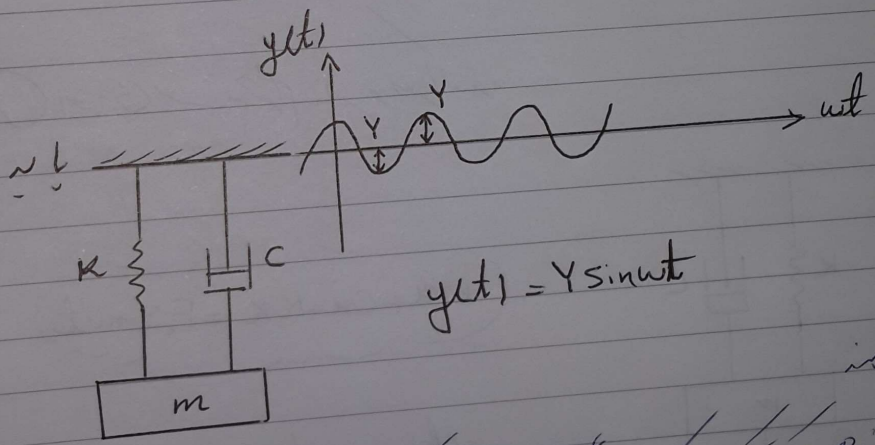 y(t)
Y
Y
wt
K
C
y(t) = Y sin wt
m